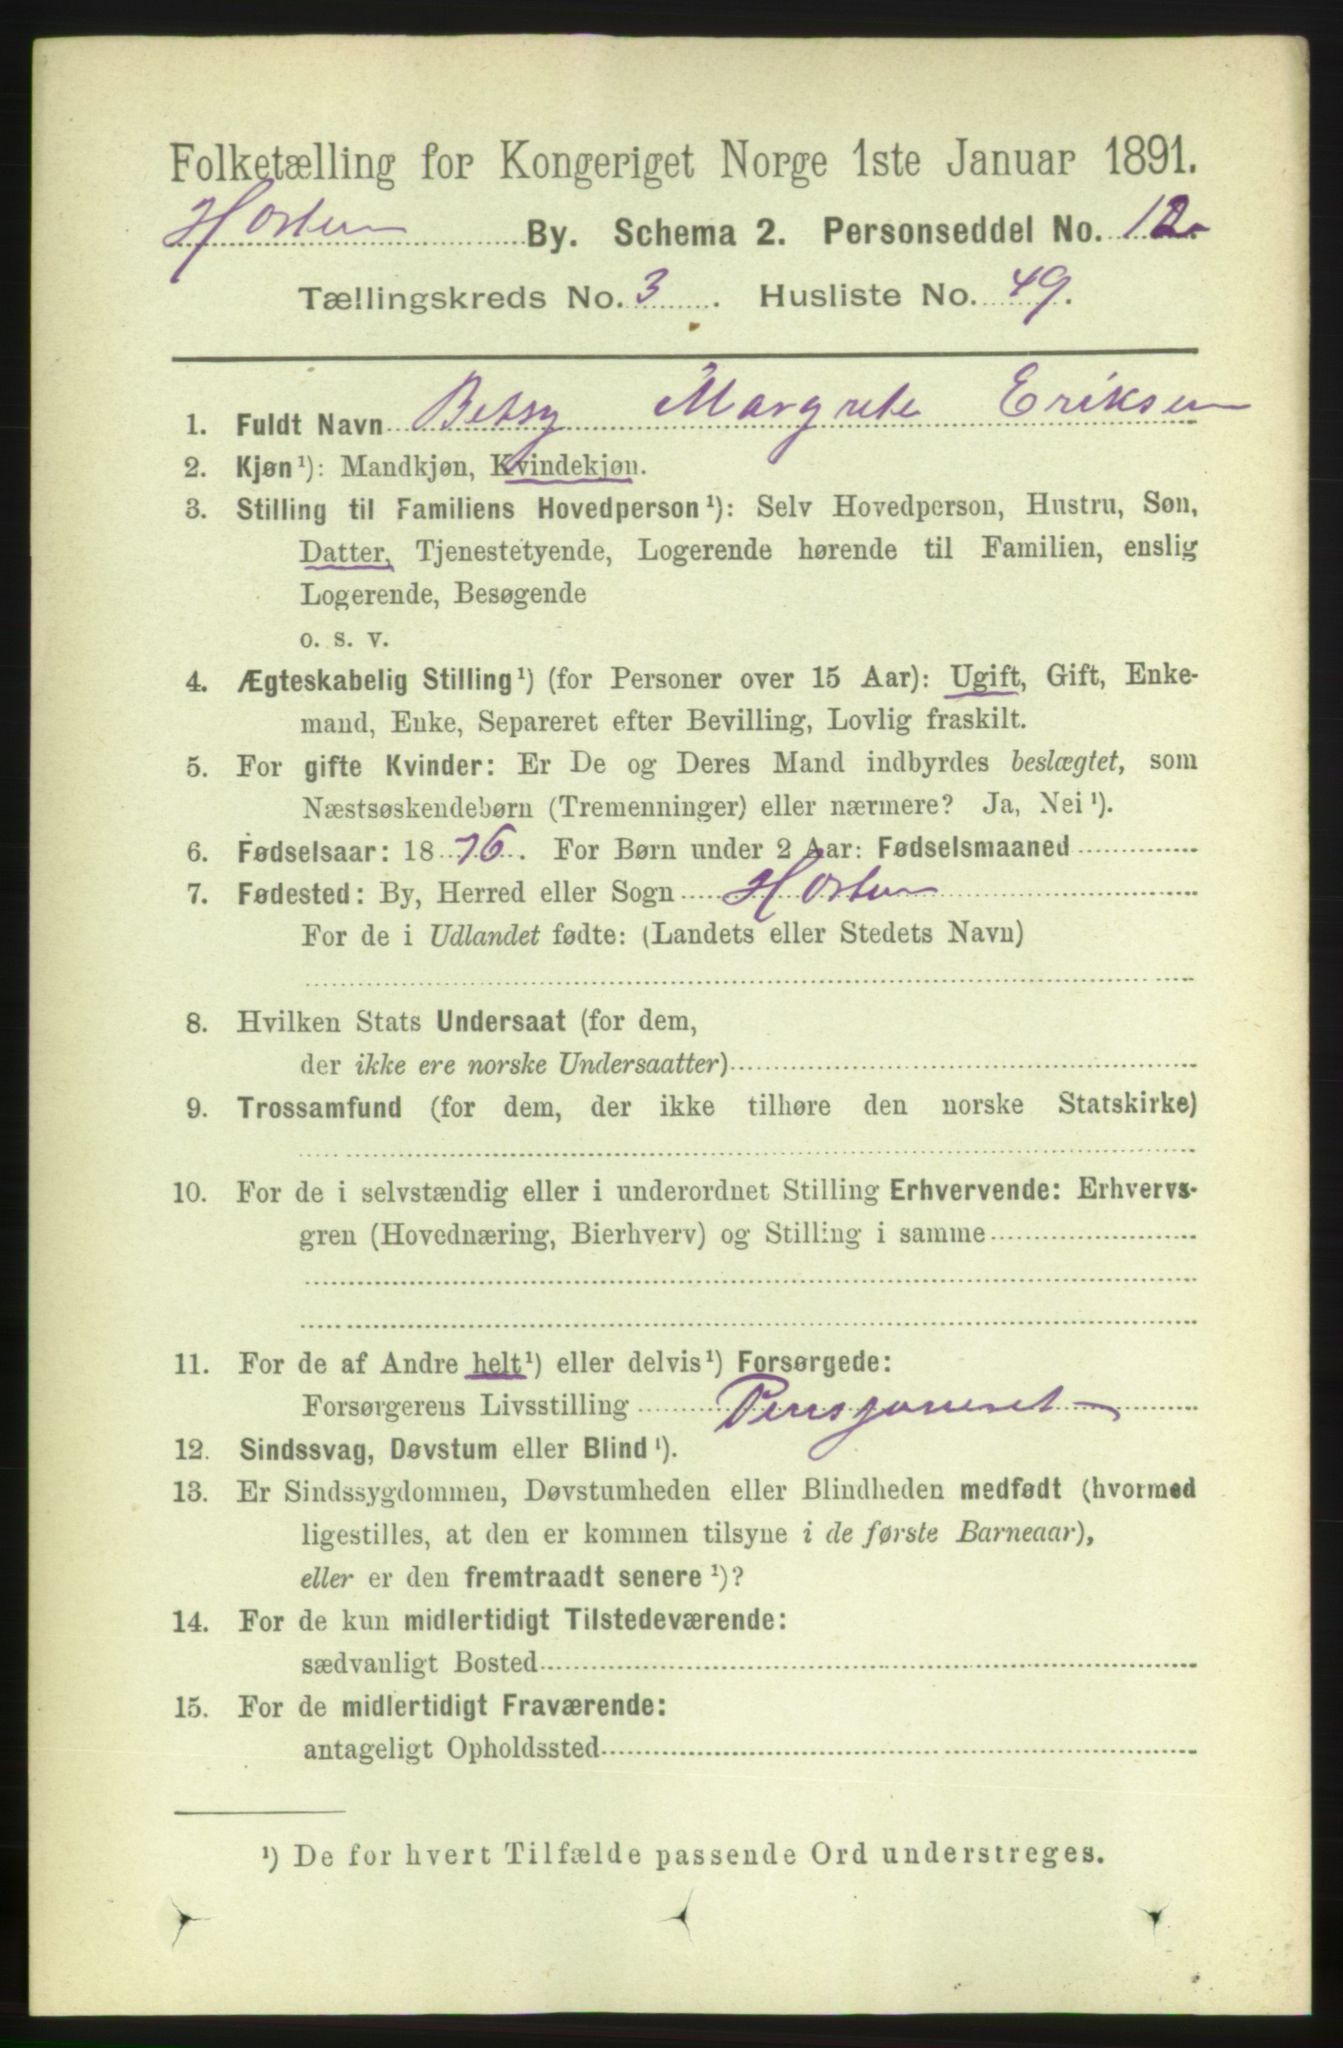 Folketælling for Kongeriget Norge 1ste Januar 1891.
Horten By. Schema 2. Personseddel No. 12
Tællingskreds No. 3. Husliste No. 49.
1. Fuldt Navn Betsy Margrete Eriksen
2. Kjøn¹): Mandkjøn, Kvindekjøn.
3. Stilling til Familiens Hovedperson¹): Selv Hovedperson, Hustru, Søn,
Datter, Tjenestetyende, Logerende hørende til Familien, enslig
Logerende, Besøgende
o. s. v.
4. Ægteskabelig Stilling¹) (for Personer over 15 Aar): Ugift, Gift, Enke-
mand, Enke, Separeret efter Bevilling, Lovlig fraskilt.
5. For gifte Kvinder: Er De og Deres Mand indbyrdes beslægtet, som
Næstsøskendebørn (Tremenninger) eller nærmere? Ja, Nei¹).
6. Fødselsaar: 1876. For Børn under 2 Aar: Fødselsmaaned
7. Fødested: By, Herred eller Sogn Horten
For de i Udlandet fødte: (Landets eller Stedets Navn)
8. Hvilken Stats Undersaat (for dem,
der ikke ere norske Undersaatter)
9. Trossamfund (for dem, der ikke tilhøre den norske Statskirke)
10. For de i selvstændig eller i underordnet Stilling Erhvervende: Erhvervs-
gren (Hovednæring, Bierhverv) og Stilling i samme
11. For de af Andre helt¹) eller delvis¹) Forsørgede:
Forsørgerens Livsstilling Pensjoneret
12. Sindssvag, Døvstum eller Blind¹).
13. Er Sindssygdommen, Døvstumheden eller Blindheden medfødt (hvormed
ligestilles, at den er kommen tilsyne i de første Barneaar),
eller er den fremtraadt senere¹)?
14. For de kun midlertidigt Tilstedeværende:
sædvanligt Bosted
15. For de midlertidigt Fraværende:
antageligt Opholdssted
¹) De for hvert Tilfælde passende Ord understreges.